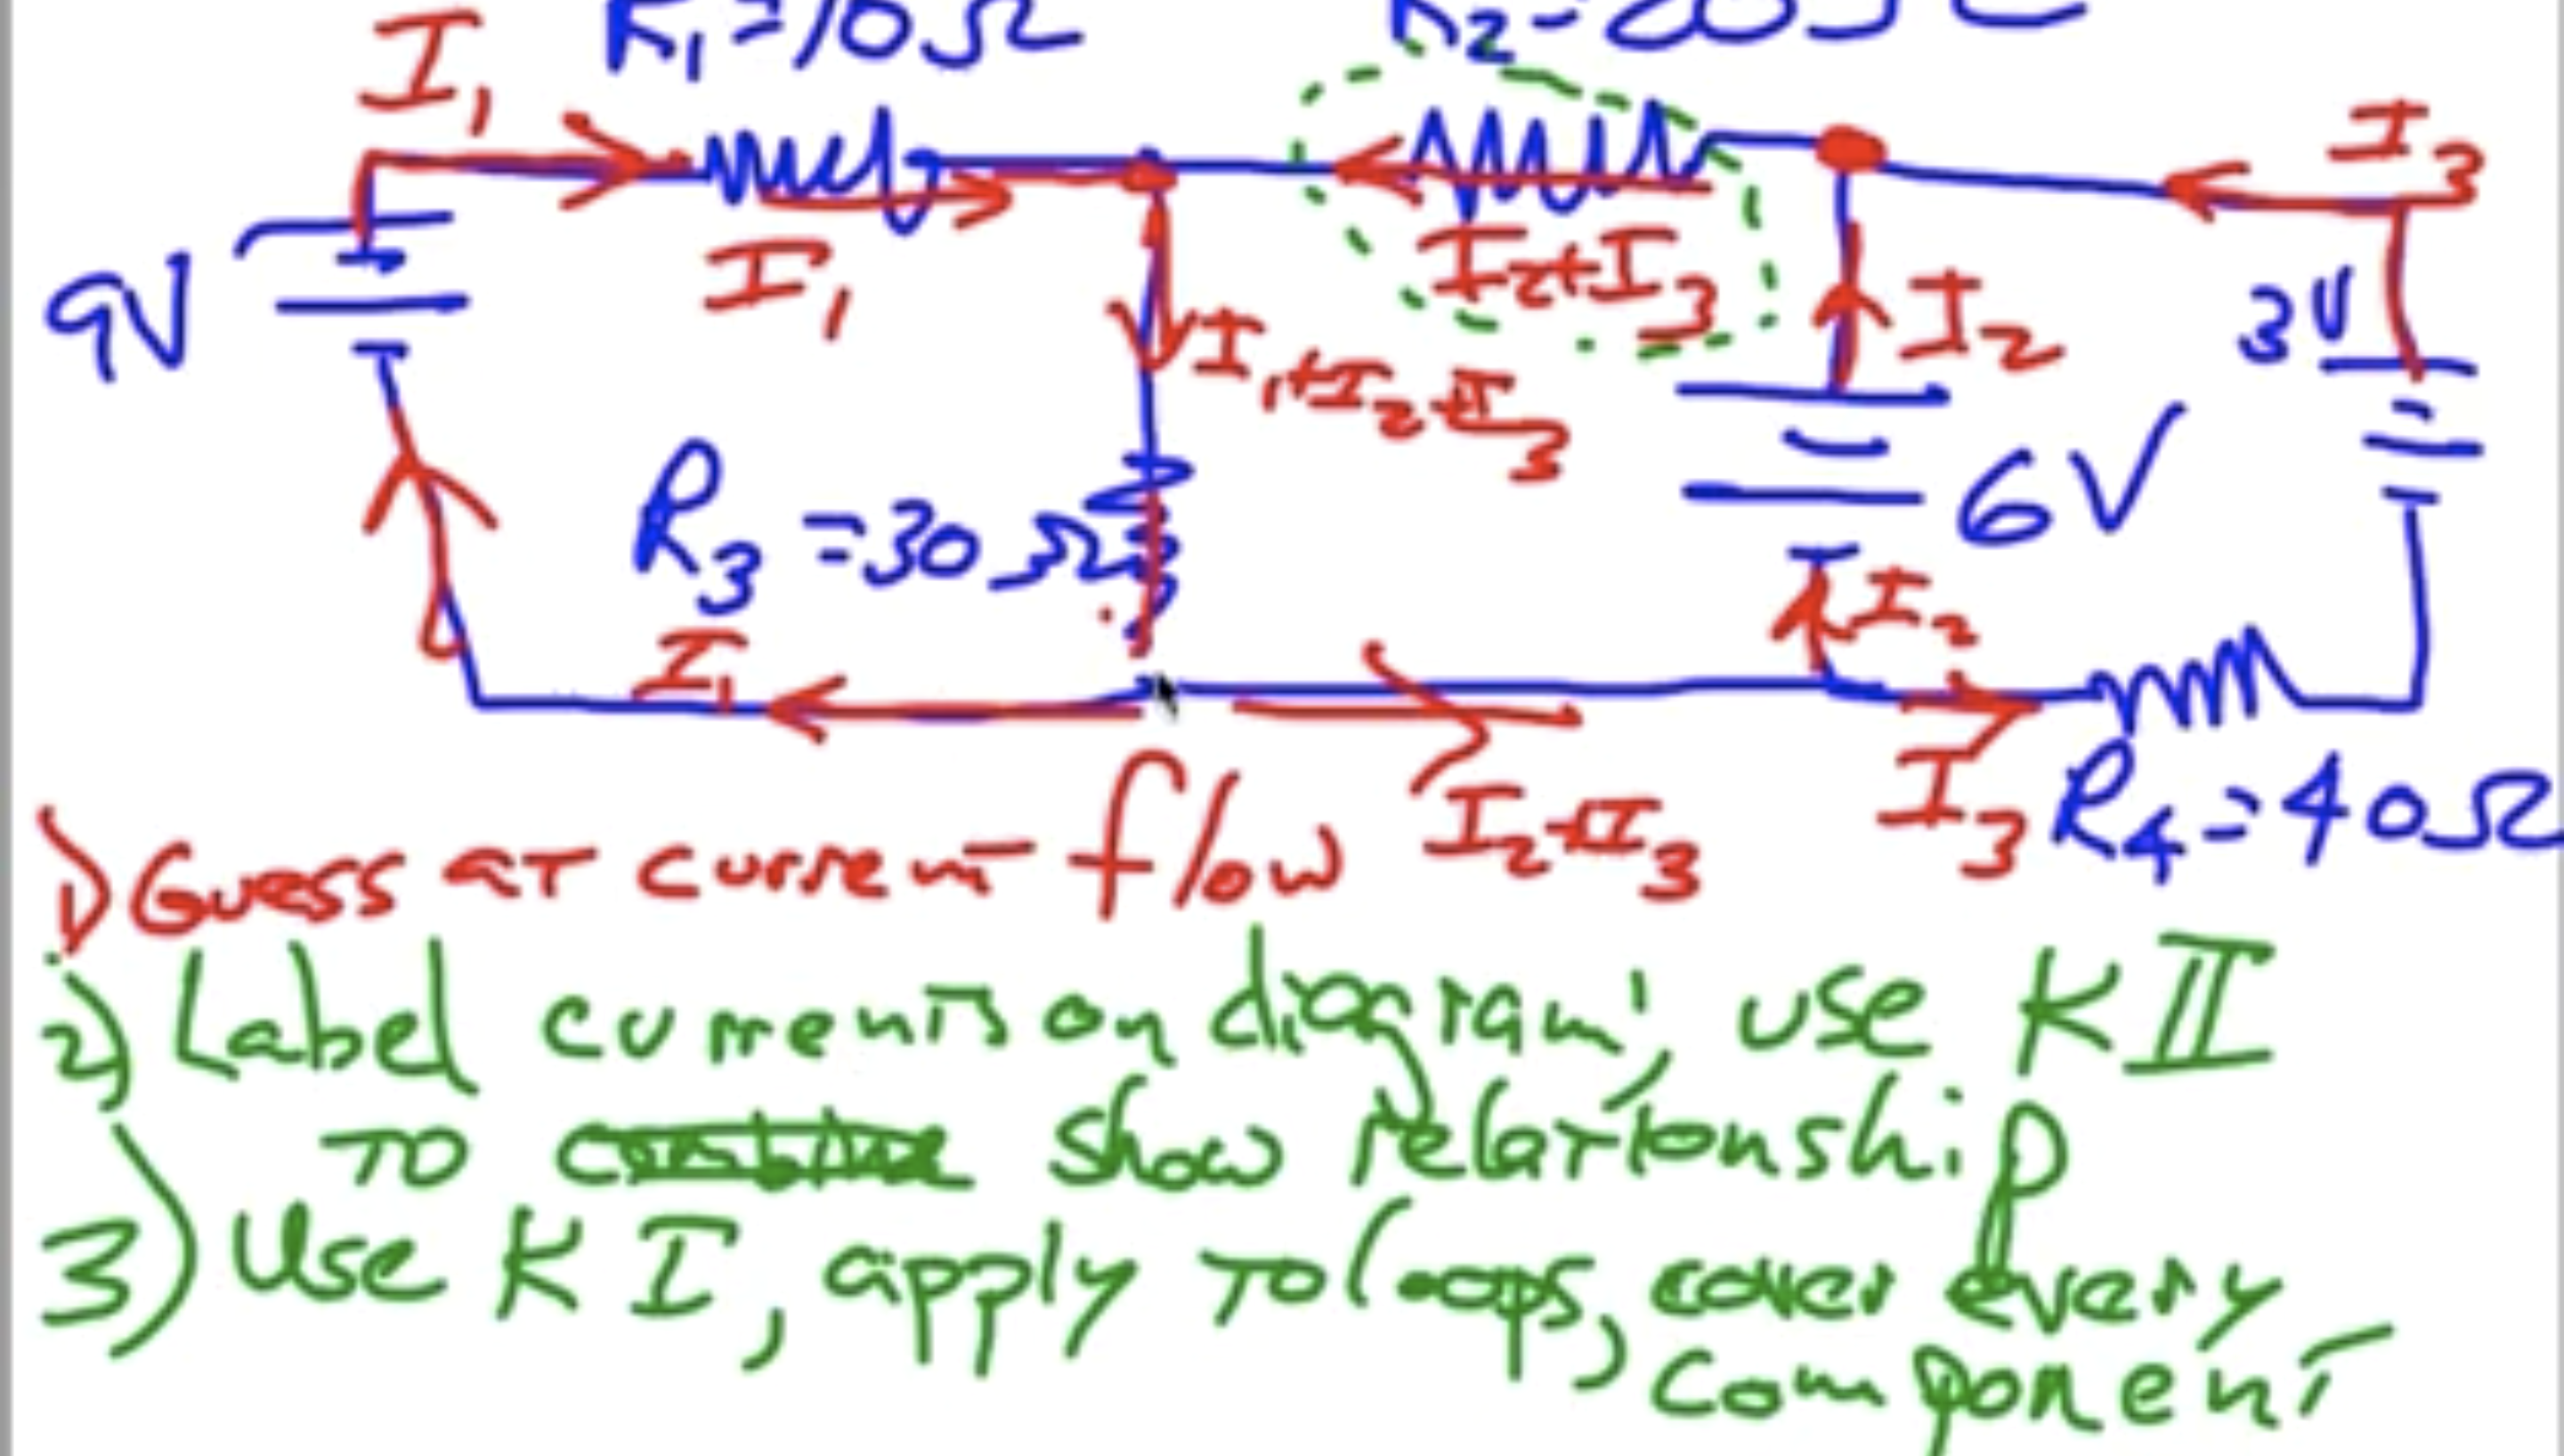 R₁=10Ω R₂=20Ω
I₁ I₃
9V I₁ I₂+I₃ I₂ 3V
I₁+I₂+I₃
R₃=30Ω 6V
I₁ I₂
I₂+I₃ I₃ R₄=40Ω
1) Guess at current flow
2) Label currents on diagram, use KII
to show relationship
3) Use KI, apply to loops, cover every
component